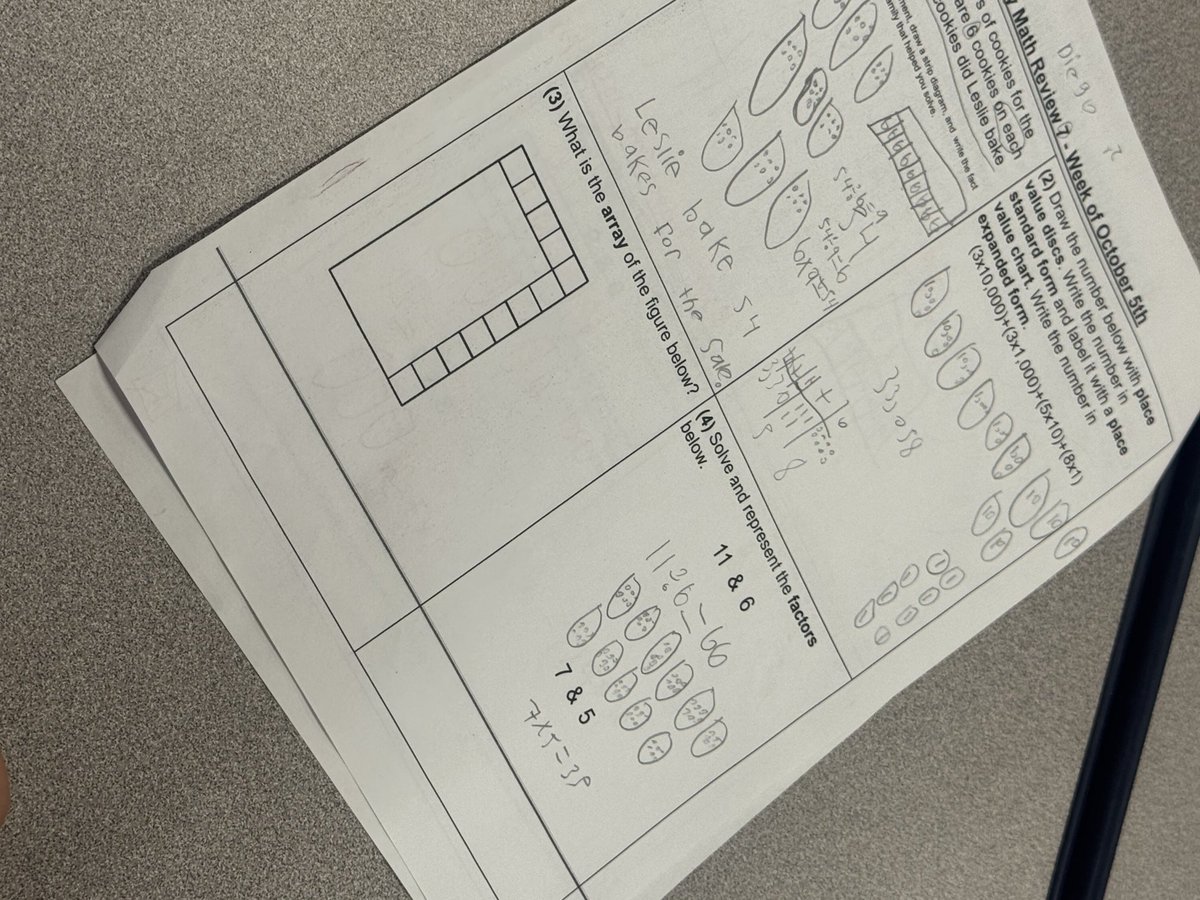 Diego
y Math Review 7 - Week of October 5th
s of cookies for the
are 6 cookies on each
cookies did Leslie bake
ment, draw a strip diagram, and write the fact
amily that helped you solve.
54÷6=9
54÷9=6
6x9=54
54
Leslie bake 54
bakes for the sale.
(2) Draw the number below with place
value discs. Write the number in
standard form and label it with a place
value chart. Write the number in
expanded form.
(3x10,000)+(3x1,000)+(5x10)+(8x1)
10 10
10
1 1
1 1
33,058
8
(3) What is the array of the figure below?
(4) Solve and represent the factors
below.
11 & 6
7 & 5